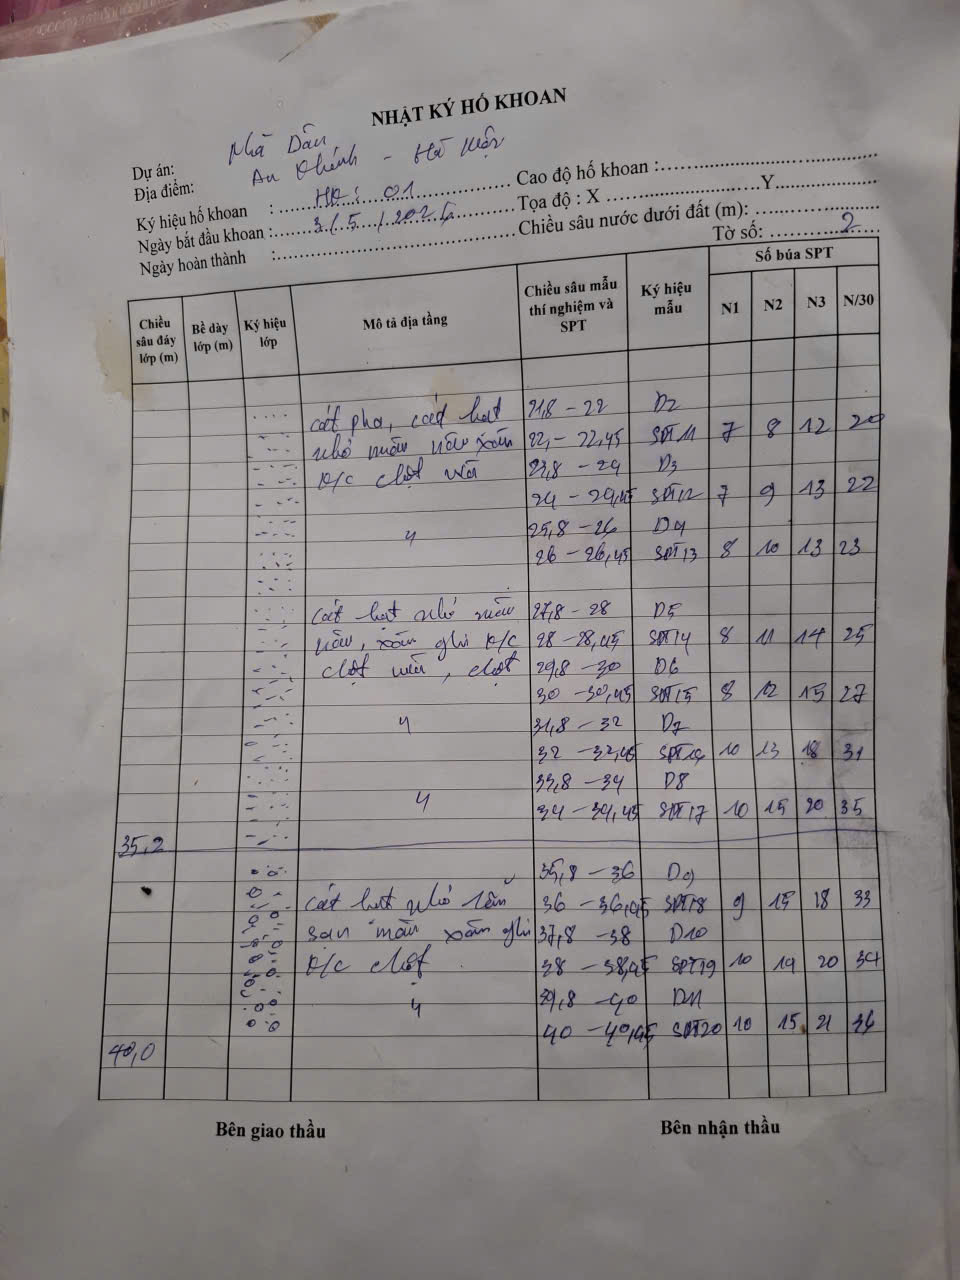 NHẬT KÝ HỐ KHOAN
Dự án: Nhà Dân
Địa điểm: An Khánh - Hà Nội
Ký hiệu hố khoan : HK: 01 Cao độ hố khoan :
Ngày bắt đầu khoan : 31/5/2025 Tọa độ : X Y
Ngày hoàn thành : Chiều sâu nước dưới đất (m):
Tờ số: 2
Chiều sâu đáy lớp (m) Bề dày lớp (m) Ký hiệu lớp Mô tả địa tầng Chiều sâu mẫu thí nghiệm và SPT Ký hiệu mẫu Số búa SPT
N1 N2 N3 N/30
cát pha, cát hạt 21,8 - 22 D2
nhỏ màu nâu xám 22,- 22,45 SPT11 7 8 12 20
K/c chặt vừa 23,8 - 24 D3
24 - 24,45 SPT12 7 9 13 22
ч 25,8 - 26 D4
26 - 26,45 SPT13 8 10 13 23
Cát hạt nhỏ màu 27,8 - 28 D5
nâu, xám ghi K/c 28 - 28,45 SPT14 8 11 14 25
chặt vừa, chặt 29,8 - 30 D6
30 - 30,45 SPT15 8 12 15 27
ч 31,8 - 32 D7
32 - 32,45 SPT16 10 13 18 31
33,8 - 34 D8
ч 34 - 34,45 SPT17 10 15 20 35
35,2
35,8 - 36 D9
cát hạt nhỏ lẫn 36 - 36,45 SPT18 9 15 18 33
sạn màu xám ghi 37,8 - 38 D10
K/c chặt. 38 - 38,45 SPT19 10 14 20 34
ч 39,8 - 40 D11
40 - 40,45 SPT20 10 15 21 36
40,0
Bên giao thầu Bên nhận thầu